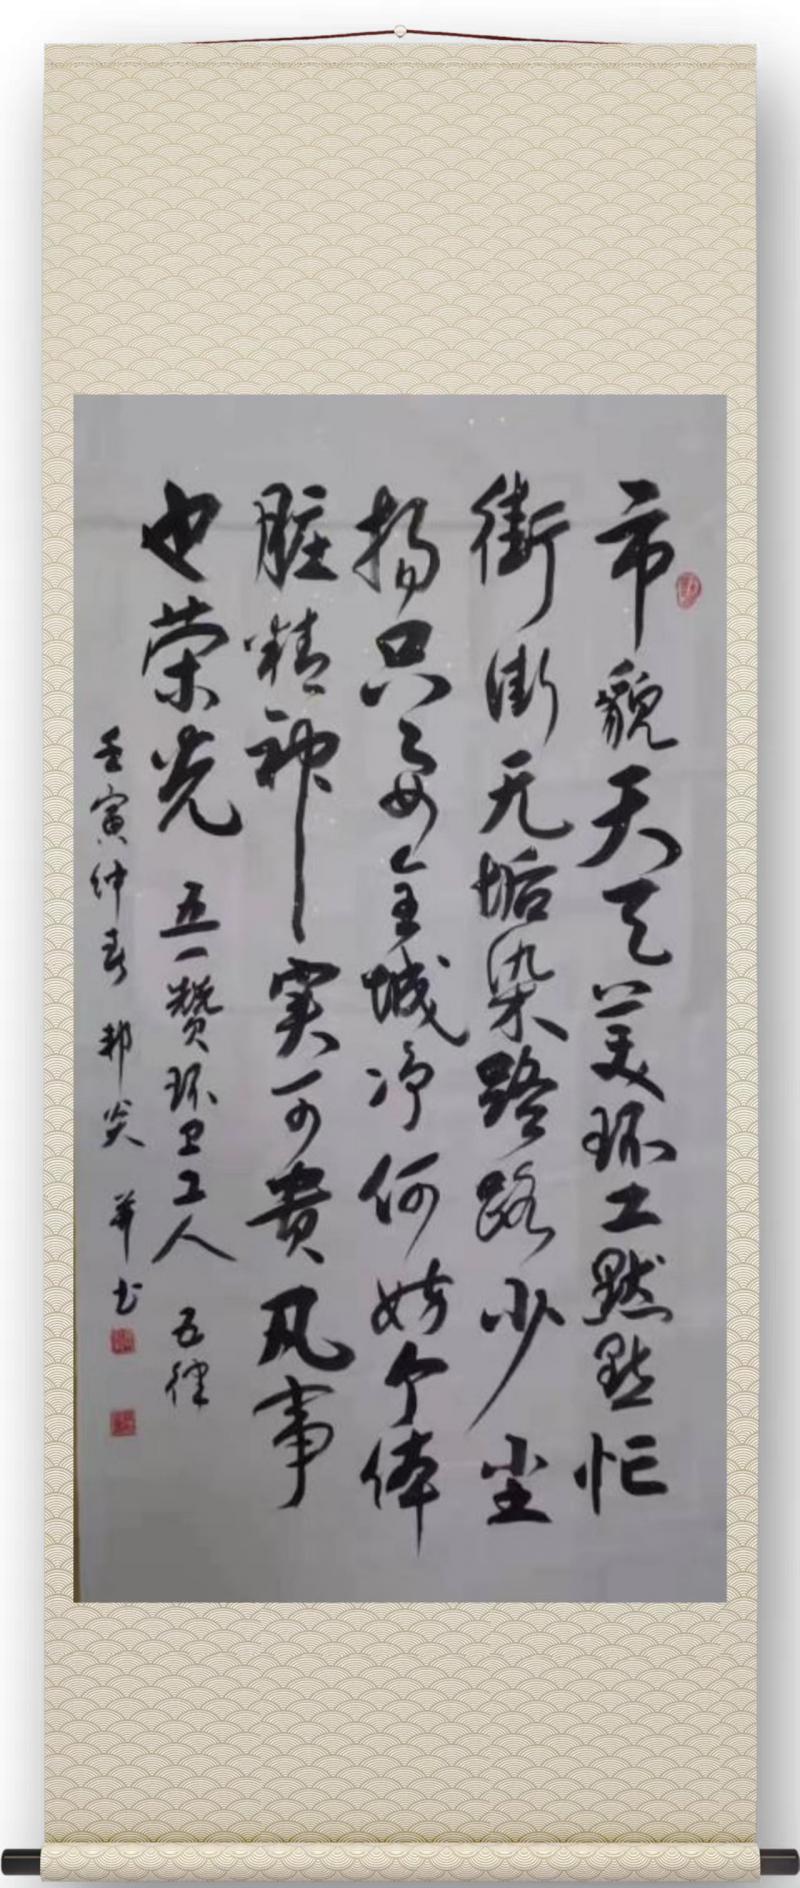 市貌天天美环工默默忙
街街无垢染路路少尘
扬只要全城净何妨个体
脏精神实可贵凡事
也荣光 五一赞环卫工人 五律
壬寅仲春 邦炎 并书